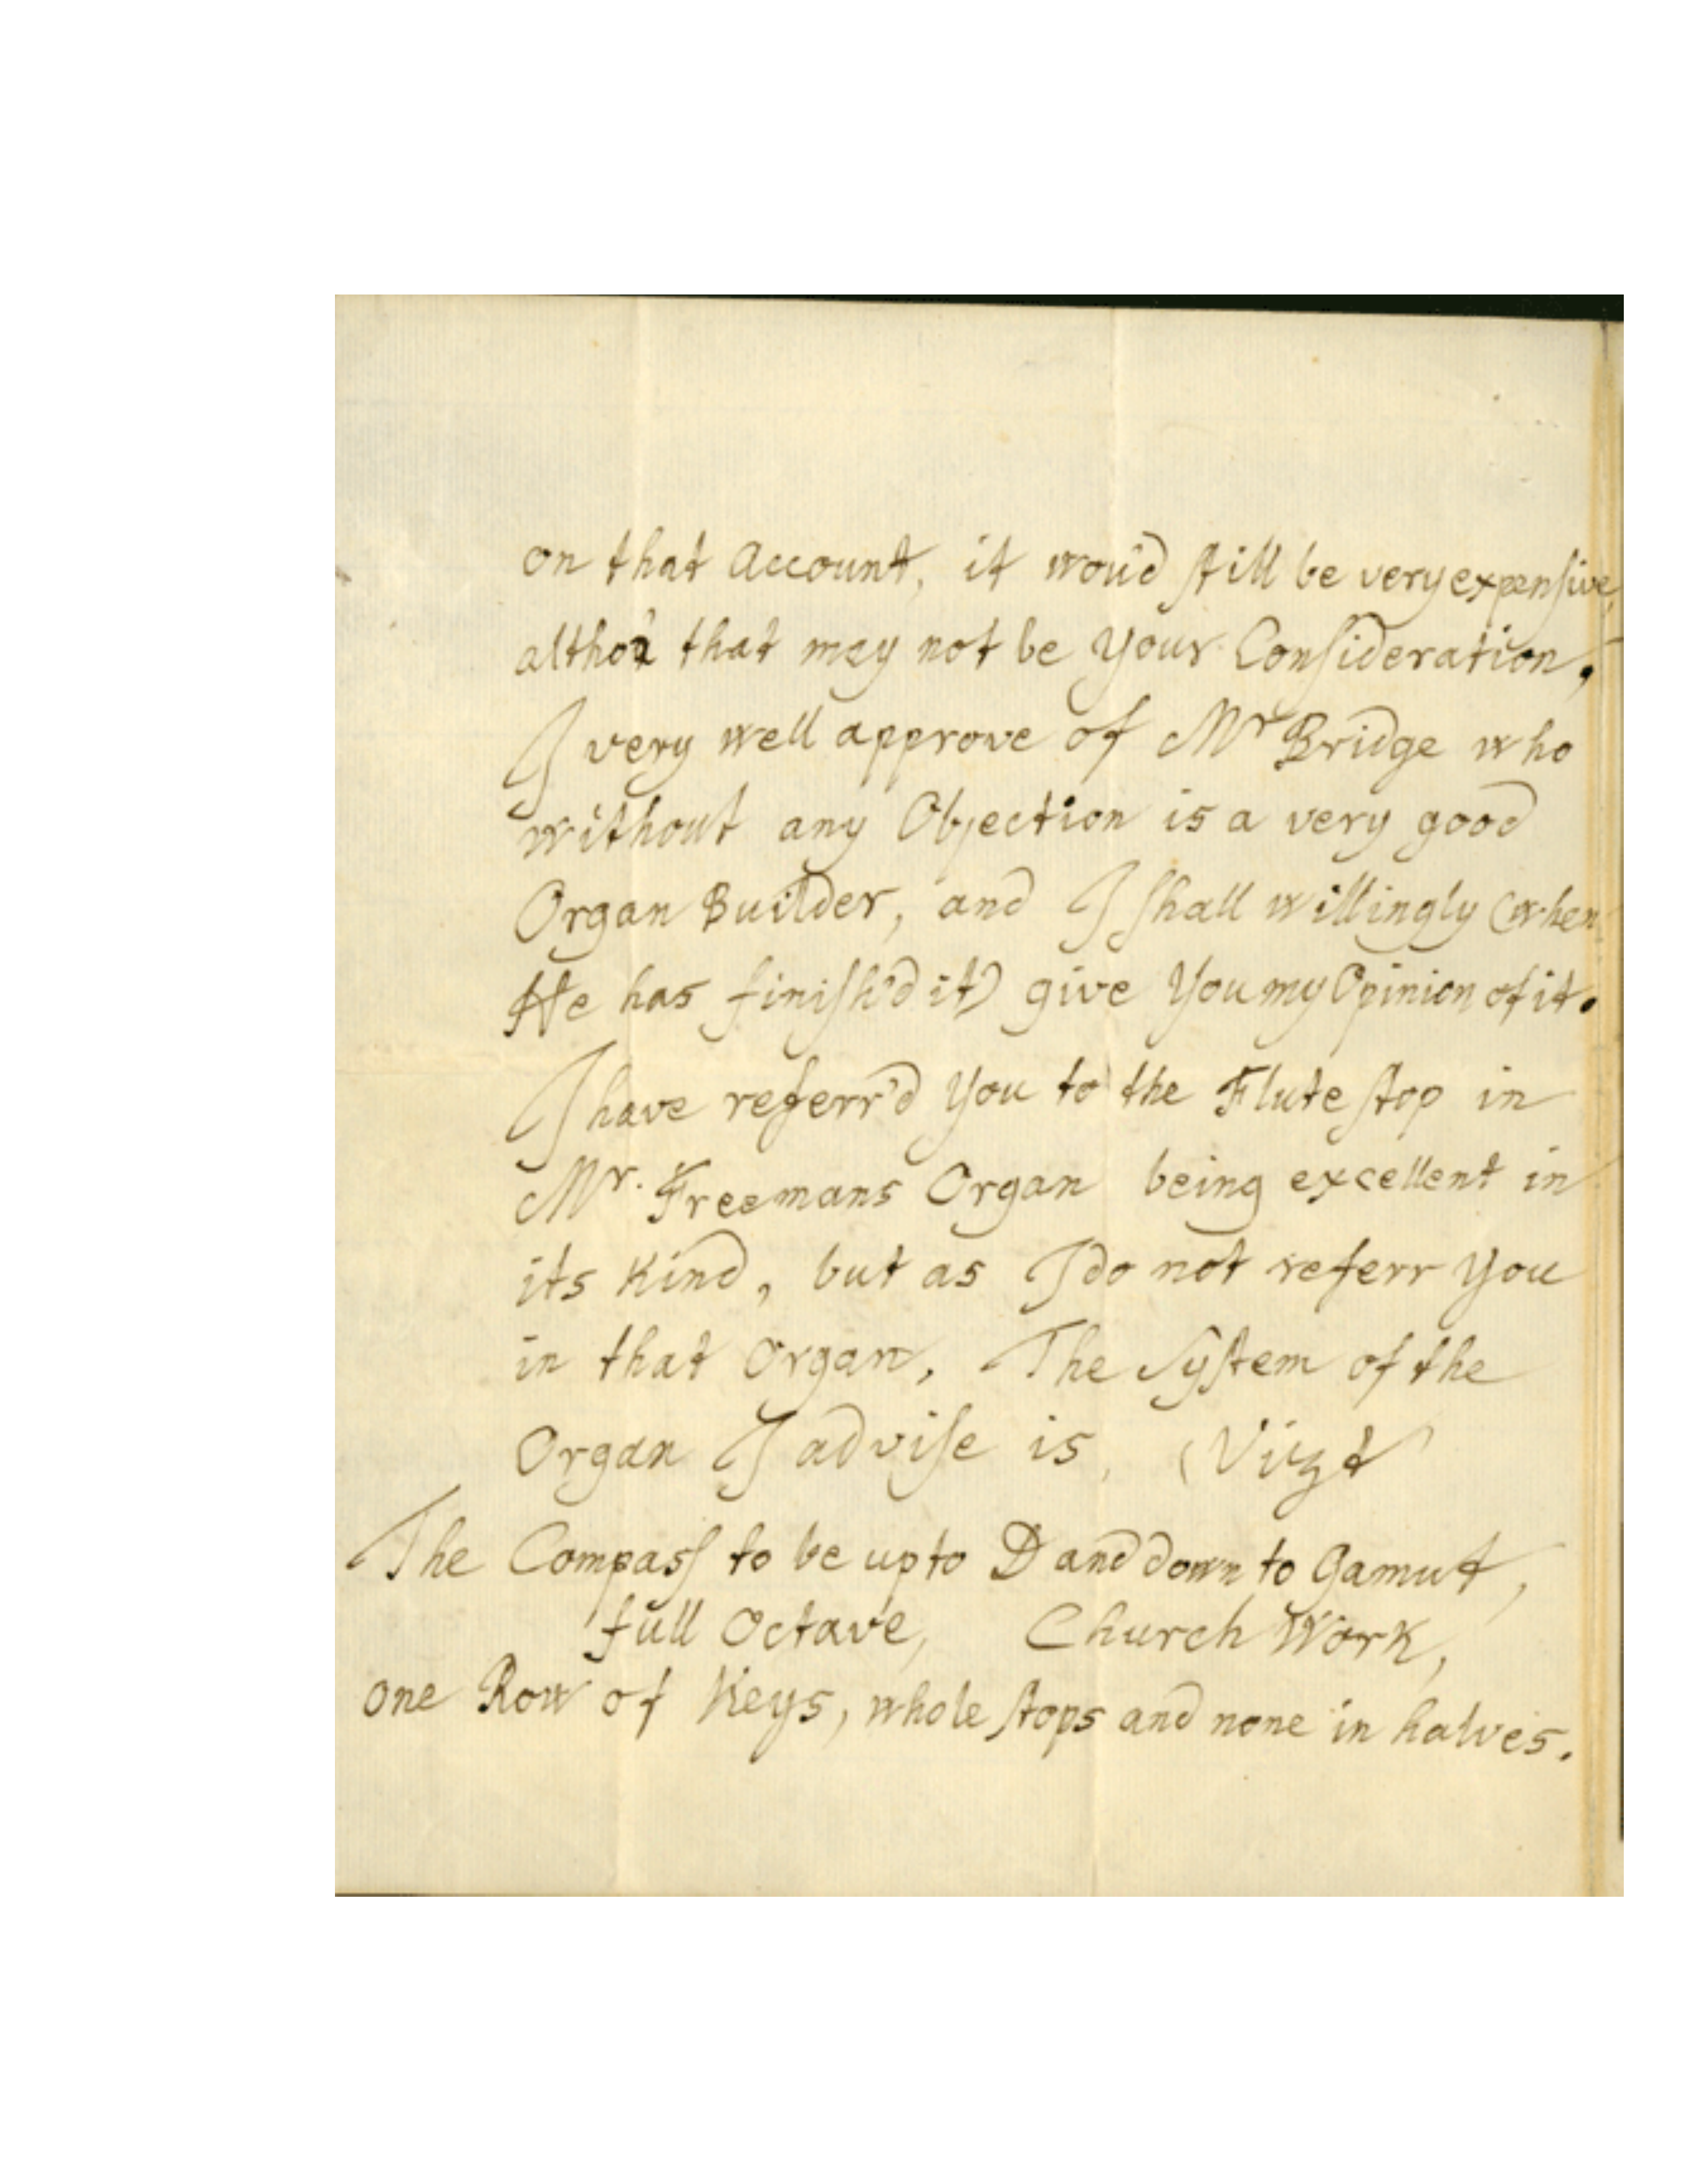 on that Account, it wou'd still be very expensive,
altho' that may not be Your Consideration,
I very well approve of Mr Bridge who
without any Objection is a very good
Organ Builder, and I shall willingly (when
He has finish'd it) give You my Opinion of it.
I have referr'd You to the Flute stop in
Mr. Freemans Organ being excellent in
its Kind, but as I do not referr You
in that Organ, The System of the
Organ I advise is, (Vizt
The Compass to be up to D and down to Gamut,
full Octave, Church Work,
one Row of Keys, whole stops and none in halves.